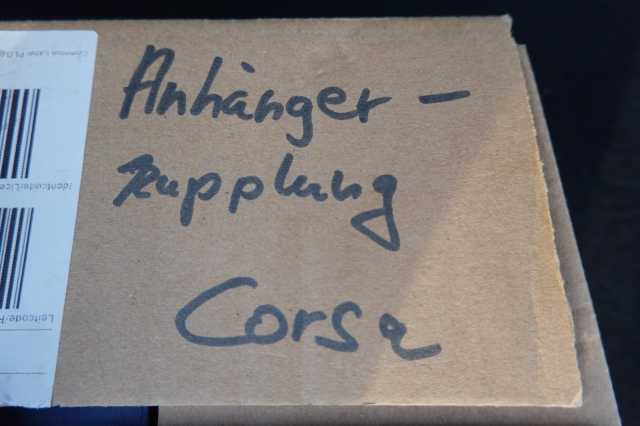 Anhänger-
kupplung
Corsa
Leitcode/R
Identcode/Lice